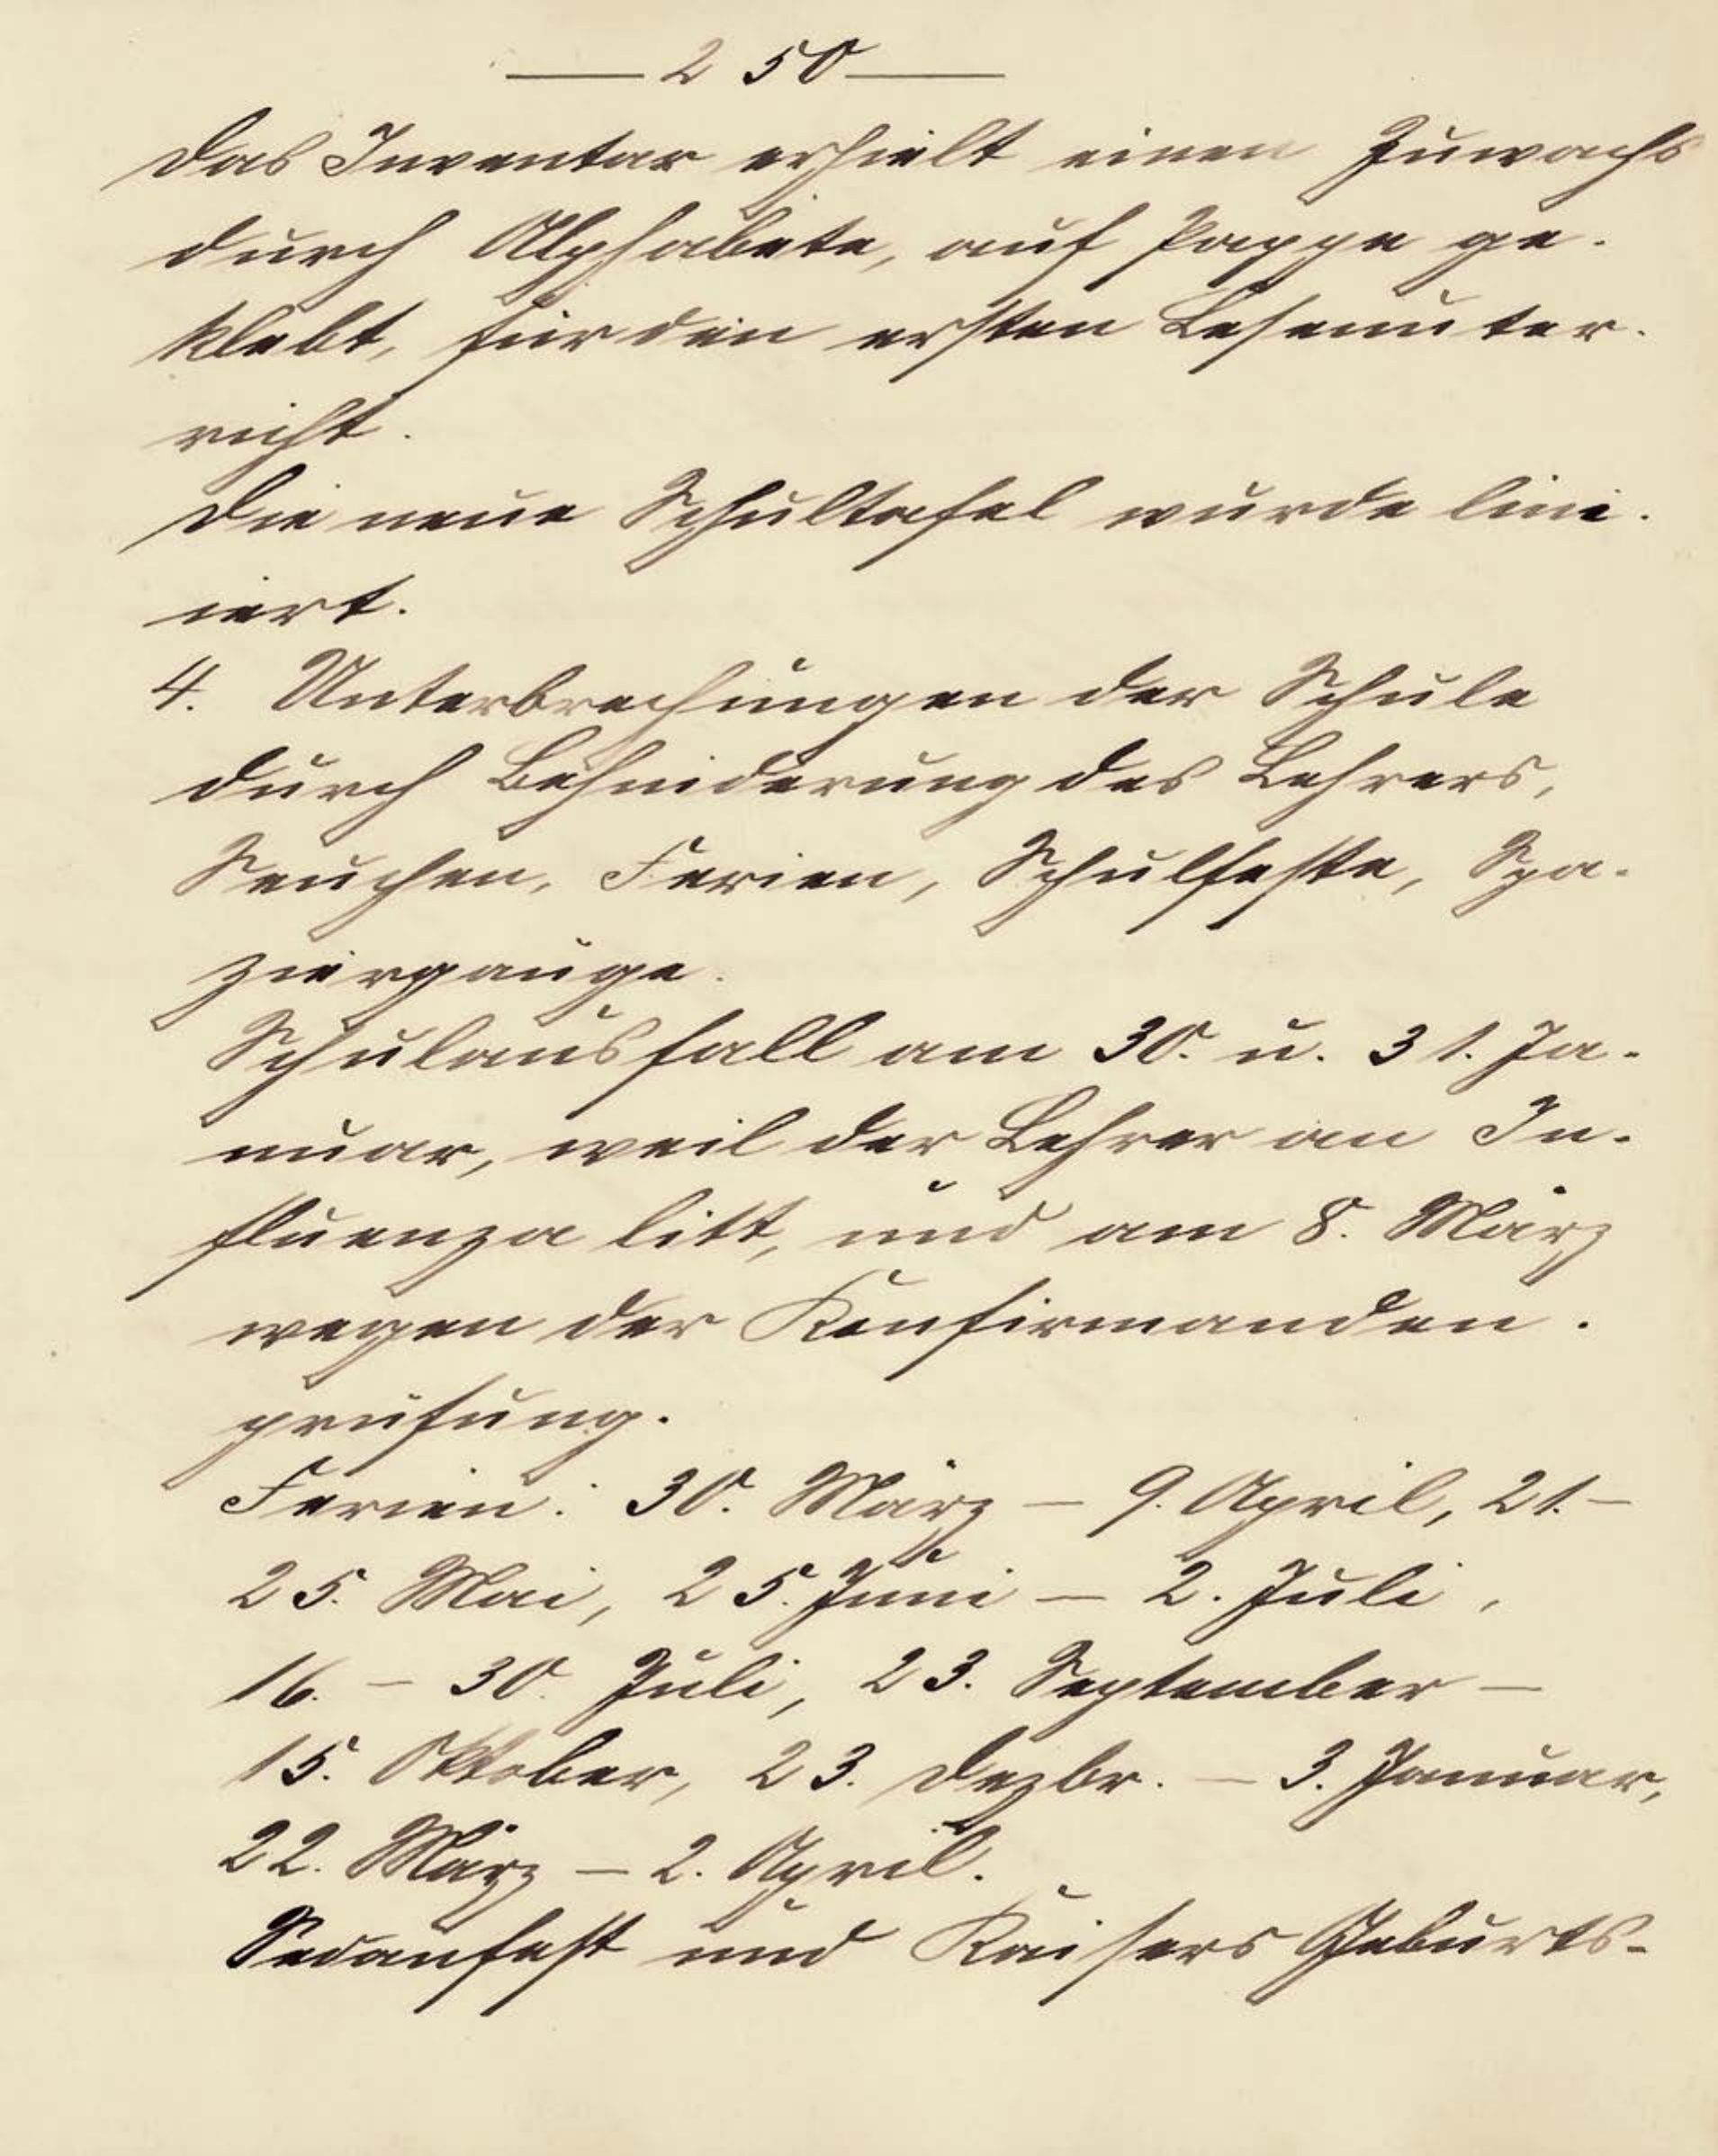 — 250 —
Das Inventar erhielt einen Zuwachs
durch Alphabete, auf Pappe ge-
klebt, für den ersten Leseunter-
richt.
Die neue Schultafel wurde lini-
iert.
4. Unterbrechungen der Schule
durch Behinderung des Lehrers,
Seuchen, Ferien, Schulfeste, Spa-
ziergänge.
Schulausfall am 30. u. 31. Ja-
nuar, weil der Lehrer an In-
fluenza litt, und am 8. März
wegen der Konfirmanden-
prüfung.
Ferien: 30. März – 9. April, 21.–
25. Mai, 25. Juni – 2. Juli,
16. – 30. Juli, 23. September –
15. Oktober, 23. Dezbr. – 3. Januar,
22. März – 2. April.
Sedanfest und Kaisers Geburts-